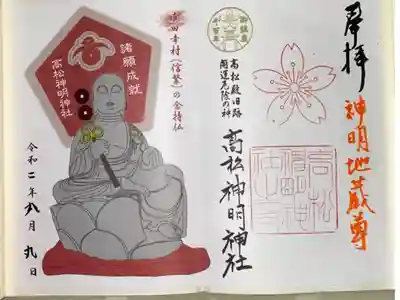 奉拝
神明地蔵尊
御鎮座
千百年
高松殿旧跡
開運厄除の神
高松神明神社
高松
神明神
社之印
真田幸村(信繁)の念持仏
諸願成就
高松神明神社
令和二年 八月 九日